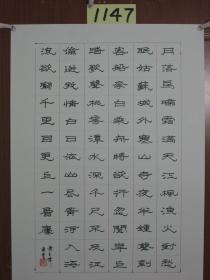 1147
月落烏啼霜滿天江楓漁火對愁
眠姑蘇城外寒山寺夜半鐘聲到
客船李白乘舟將欲行忽聞岸上
踏歌聲桃花潭水深千尺不及汪
倫送我情白日依山盡黃河入海
流欲窮千里目更上一層樓